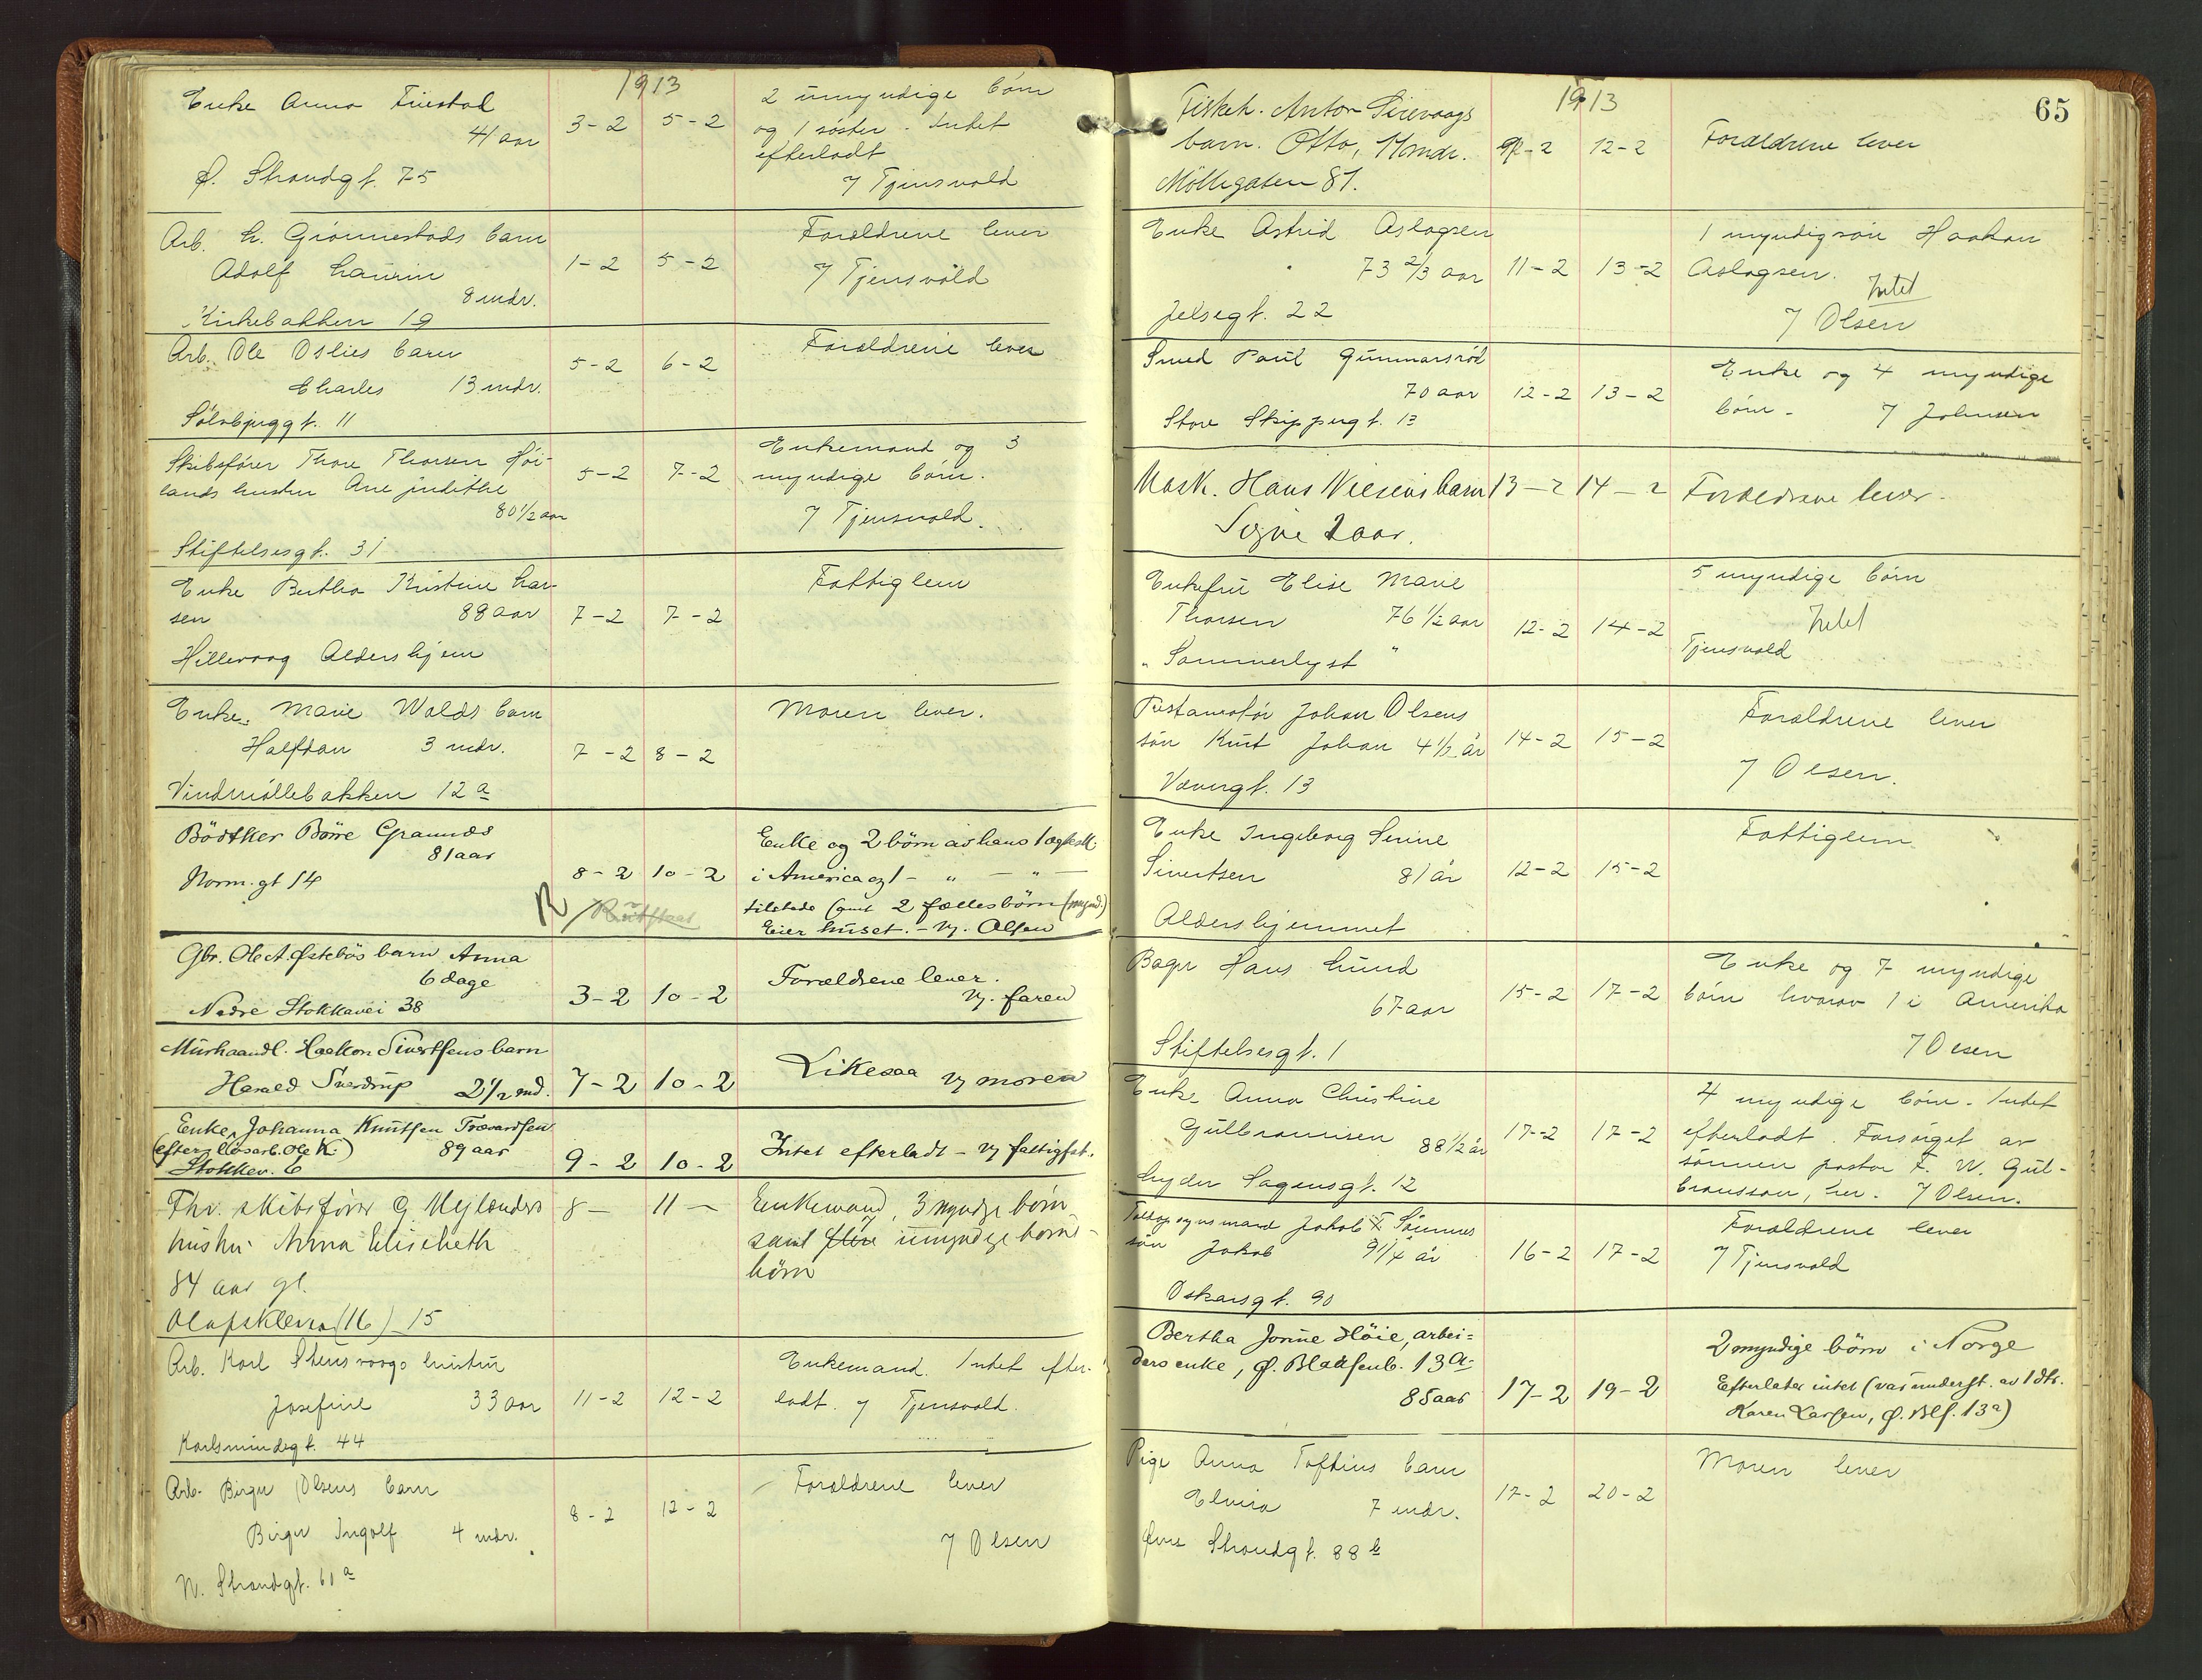 1913
Enke Anna Fuestad
41 aar
Ø. Strandgt. 75
3-2
5-2
2 umyndige börn
og 1 söster. Intet
efterladt
v/ Tjensvold
Arb. L. Grönnestads barn
Adolf Laurin
8 mdr.
Kirkebakken 19
1-2
5-2
Forældrene lever
v/ Tjensvold
Arb. Ole Oslies barn
Charles 13 mdr.
Sölvbjerggt. 11
5-2
6-2
Forældrene lever
Skibsförer Thore Thorsen Höi-
lands hustru Ane Judithe
80 1/2 aar
Stiftelsesgt. 31
5-2
7-2
Enkemand og 3
myndige börn.
v/ Tjensvold.
Enke Bertha Kristine Lar-
sen 88 aar
Hillevaag Aldershjem
7-2
7-2
Fattiglem
Enke. Marie Walds barn
Halfdan 3 mdr.
Vindmöllebakken 12 a
7-2
8-2
Moren lever.
Bödtker Börre Graunes
81 aar
Norm.gt 14
8-2
10-2
R
Enke og 2 börn av hans 1 ægtesk.
i America og 1 - " - " -
tilstede samt 2 fællesbörn (mynd.)
Eier huset. - v/. Olsen
Gbr. Ole A. Östebös barn Anna
6 dage
Nedre Stokkavei 38
3-2
10-2
Forældrene lever.
v/. faren
Murhaandl. Haakon Sivertsens barn
Harald Sverdrup 2 1/2 md.
7-2
10-2
Likesaa v/ moren
Enke Johanna Knutsen Tveraasen
(efter lösarb. Ole K.) 89 aar
Stokkav. 6
9-2
10-2
Intet efterladt - v/ fattigfst.
Fhv. skibsförer G Mejlænders
hustru Anna Elisebeth
84 aar gl.
Olafskleiva (16) 15
8-
11-
Enkemand, 3 myndge börn
samt flere umyndige børne-
børn
Arb. Karl Stensvaags hustru
Josefine 33 aar
Karlsmindegt. 44
11-2
12-2
Enkemand. Intet efter-
ladt. v/ Tjensvold.
Arb. Birger Olsens barn
Birger Ingolf 4 mdr.
N. Strandgt. 61 a
8-2
12-2
Forældrene lever
v/ Olsen
65
1913
Fiskeh. Anton Sirevaags
barn. Otto, 11 mdr.
Möllegaten 81.
9-2
12-2
Forældrene lever
Enke Astrid Aslagsen
73 2/3 aar
Jelsegt. 22
11-2
13-2
1 myndig sön Haakon
Aslagsen. Intet
v/ Olsen
Smed Paul Gunnarsröd
70 aar
Store Skippergt. 13
12-2
13-2
Enke og 4 myndige
börn - v/ Johnsen
Mask. Hans Nielsens barn
Signe 2 aar.
13-2
14-2
Forældrene lever.
Enkefru Elise Marie
Thorsen 76 1/2 aar
"Sommerlyst"
12-2
14-2
5 myndige börn
Intet
Tjensvold
Restauratör Johan Olsens
sön Kurt Johan 4 1/2 år
Vævergt. 13
14-2
15-2
Forældrene lever
v/ Olsen.
Enke Ingeborg Serine
Sivertsen 81 år
Aldershjemmet
12-2
15-2
Fattiglem
Bager Hans Lund
67 aar
Stiftelsesgt. 1
15-2
17-2
Enke og 7 myndige
börn hvorav 1 i Amerika
v/ Olsen
Enke Anna Christine
Gulbrannsen 88 1/2 år
Lyder Sagensgt. 12
17-2
17-2
4 myndige börn. Intet
efterladt. Forsörget av
sönnen pastor F. W. Gul-
bransson, her. v/ Olsen.
Toldopsynsmand Jakob F. Sömmes
sön Jakob 9 1/4 år
Oskarsgt. 90
16-2
17-2
Forældrene lever
v/ Tjensvold
Bertha Jorine Höie, arbei-
ders enke, Ø. Blaasenb. 13 a-
85 aar
17-2
19-2
2 myndige börn i Norge
Efterlater intet (var underst. av 1 dtr.
Karen Larsen, Ø. Blf. 13 a)
Pige Anna Toftius barn
Elvira 7 mdr.
Övre Strandgt. 88 b
17-2
20-2
Moren lever